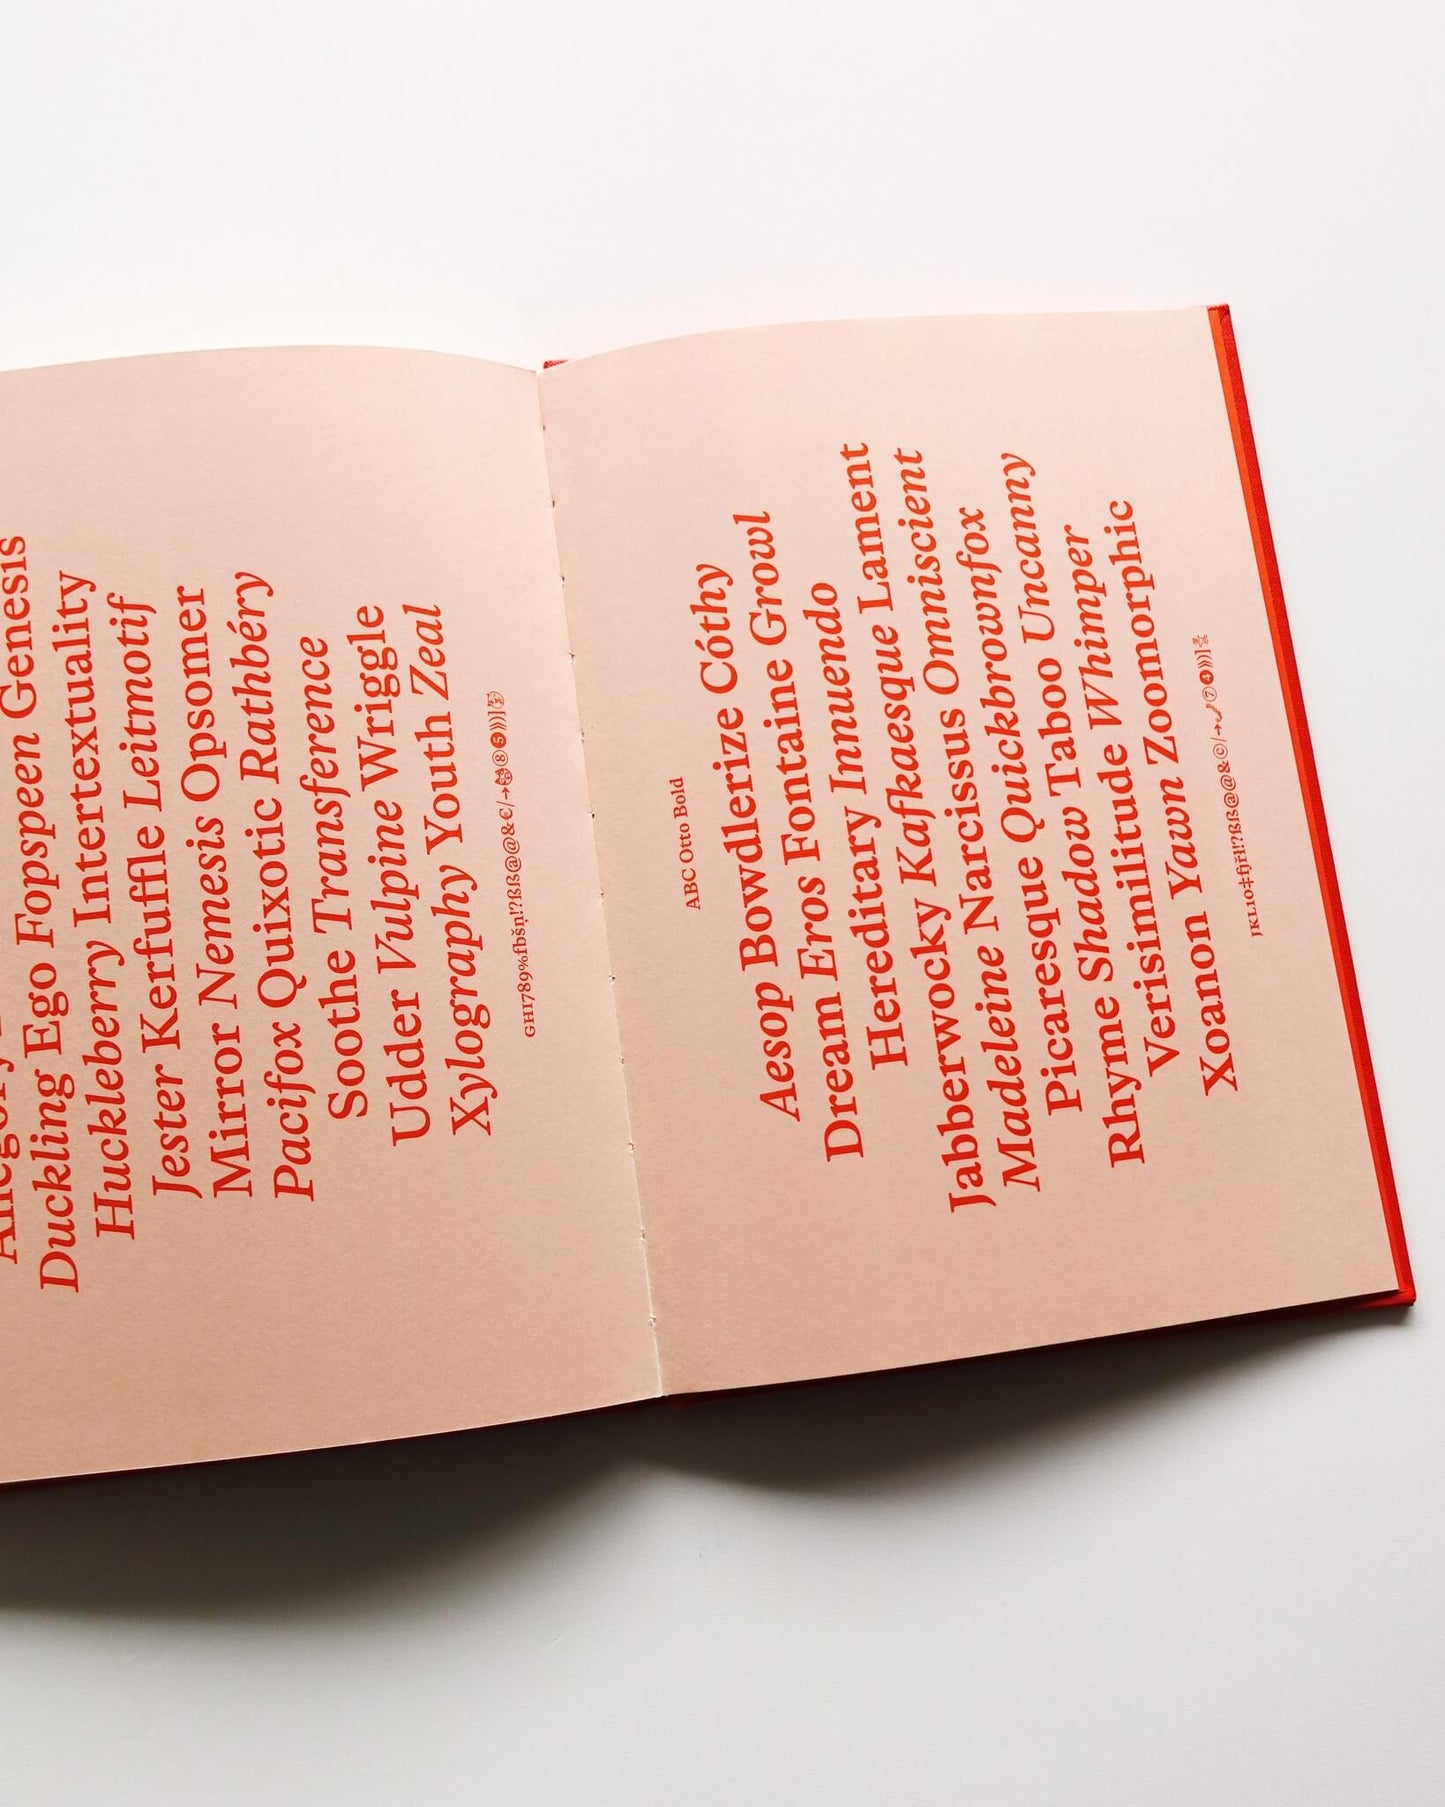 Duckling Ego Fopspeen Genesis
Huckleberry Intertextuality
Jester Kerfuffle Leitmotif
Mirror Nemesis Opsomer
Pacifox Quixotic Rathbéry
Soothe Transference
Udder Vulpine Wriggle
Xylography Youth Zeal
ABC Otto Bold
Aesop Bowdlerize Cóthy
Dream Eros Fontaine Growl
Hereditary Innuendo
Jabberwocky Kafkaesque Lament
Madeleine Narcissus Omniscient
Picaresque Quickbrownfox
Rhyme Shadow Taboo Uncanny
Verisimilitude Whimper
Xoanon Yawn Zoomorphic